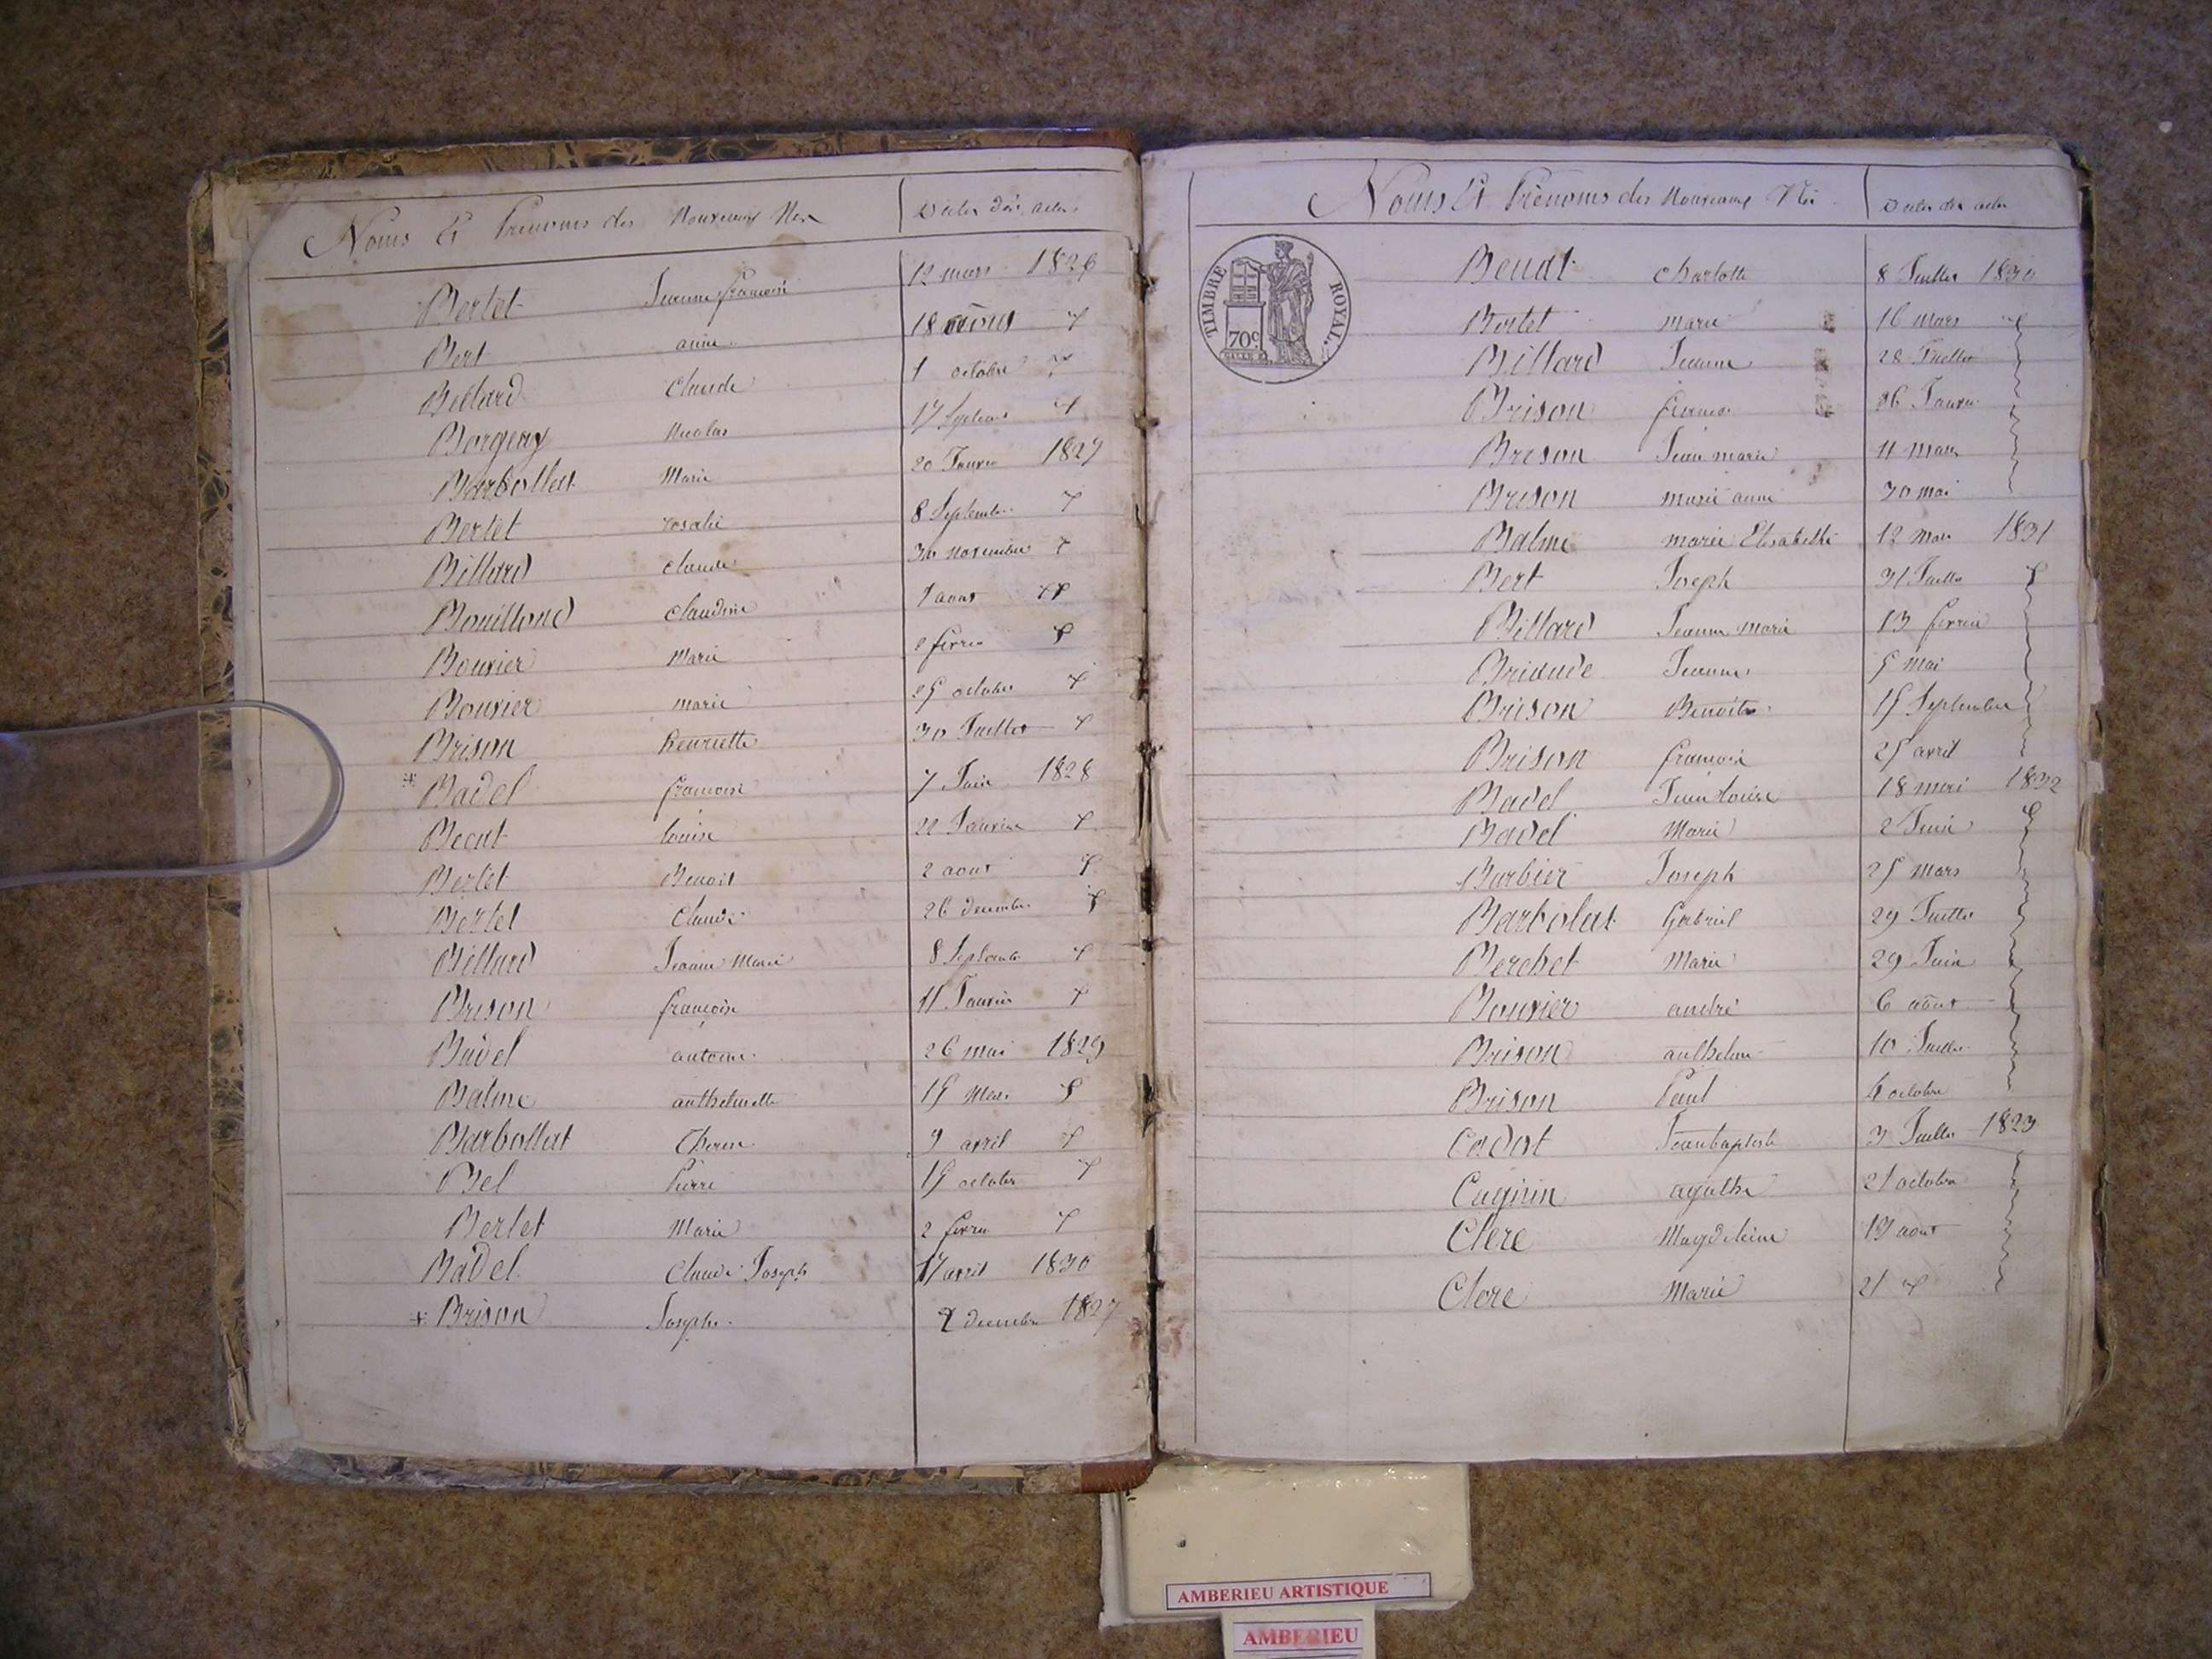 Noms Et Prénoms des Nouveaux Nés Dates des actes
Bertet Jeanne françoise 12 mars 1826
Bert anne 18 aout
Billard Claude 1 octobre
Borgeay Nicolas 17
Barbollat Marie 20 Janvier 1827
Bertet rosalie 8 Septembre
Billard claude novembre
Bouillond claudine 1 aout
Bouvier Marie 2 fevrier
Bouvier marie 25 octobre
Brison henriette 30 Juillet
Badel francoise 7 Juin 1828
Becat louise 22 Janvier
Bertet Benoit 2 aout
Bertet Claude 26 decembre
Billard Jeanne Marie 8 Septembre
Brison françoise 11 Janvier
Badel antoine 26 mai 1829
Balme anthelmette 15 Mars
Barbollat Therese 9 avril
Bel Pierre 15 octobre
Bertet Marie 2 fevrier
Badel Claude Joseph 17 avril 1830
Brison Joseph 2 decembre 1827
Noms Et Prénoms des Nouveaux Nés Dates des actes
TIMBRE ROYAL
70c
charlotte 8 Juillet 1830
Bertet marie 16 Mars
Billard Jeanne 28 Juillet
Brison 26 Janvier
Brison Jean marie 11 mars
Brison marie anne 30 mai
Balme marie Elisabeth 12 Mars 1831
Bert Joseph 31 Juillet
Billard Jeanne Marie 13 fevrier
Jeanne 5 mai
Brison Benoite 15 Septembre
Brison francoise 25 avril
Badel Jean Louise 18 mai 1832
Badel Marie 2 Juin
Barbier Joseph 25 mars
Barbolat Gabriel 29 Juillet
Berchet Marie 29 Juin
Bouvier andré 6 aout
Brison anthelme 10 Juillet
Brison Paul 4 octobre
Codot Jean baptiste 3 Juillet 1823
Cagnin agathe 21 octobre
Clere Magdeleine 13 aout
Clere Marie 21
AMBERIEU ARTISTIQUE
AMBERIEU